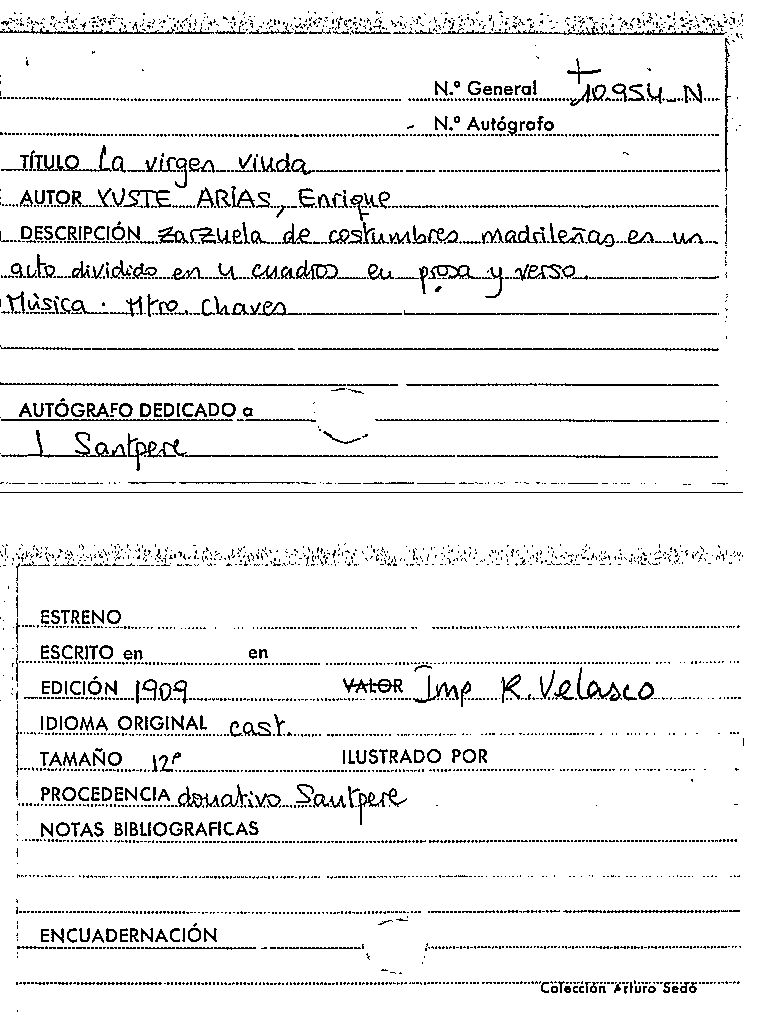 N.º General 10.954-N
N.º Autógrafo
TÍTULO La virgen viuda
AUTOR YUSTE ARÍAS, Enrique
DESCRIPCIÓN zarzuela de costumbres madrileñas en un
acto dividido en 4 cuadros en prosa y verso.
Música. Mtro. Chaves
AUTÓGRAFO DEDICADO a
J Santpere
ESTRENO
ESCRITO en en
EDICIÓN 1909 VALOR Imp R. Velasco
IDIOMA ORIGINAL cast.
TAMAÑO 12º ILUSTRADO POR
PROCEDENCIA donativo Santpere
NOTAS BIBLIOGRAFICAS
ENCUADERNACIÓN
Colección Arturo Sedó